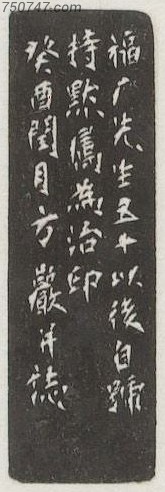 750747.com
福广先生五十以後自號
持默屬為治印
癸酉閏月方巖并誌